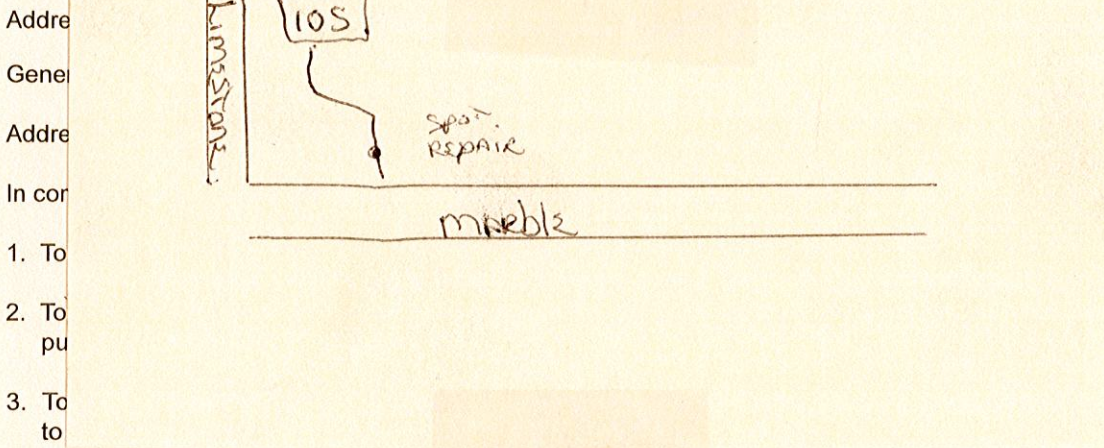 Addre
Gener
Addre
In cor
1. To
2. To
pu
3. To
to
Limestone
105
Spot.
REPAIR
marble